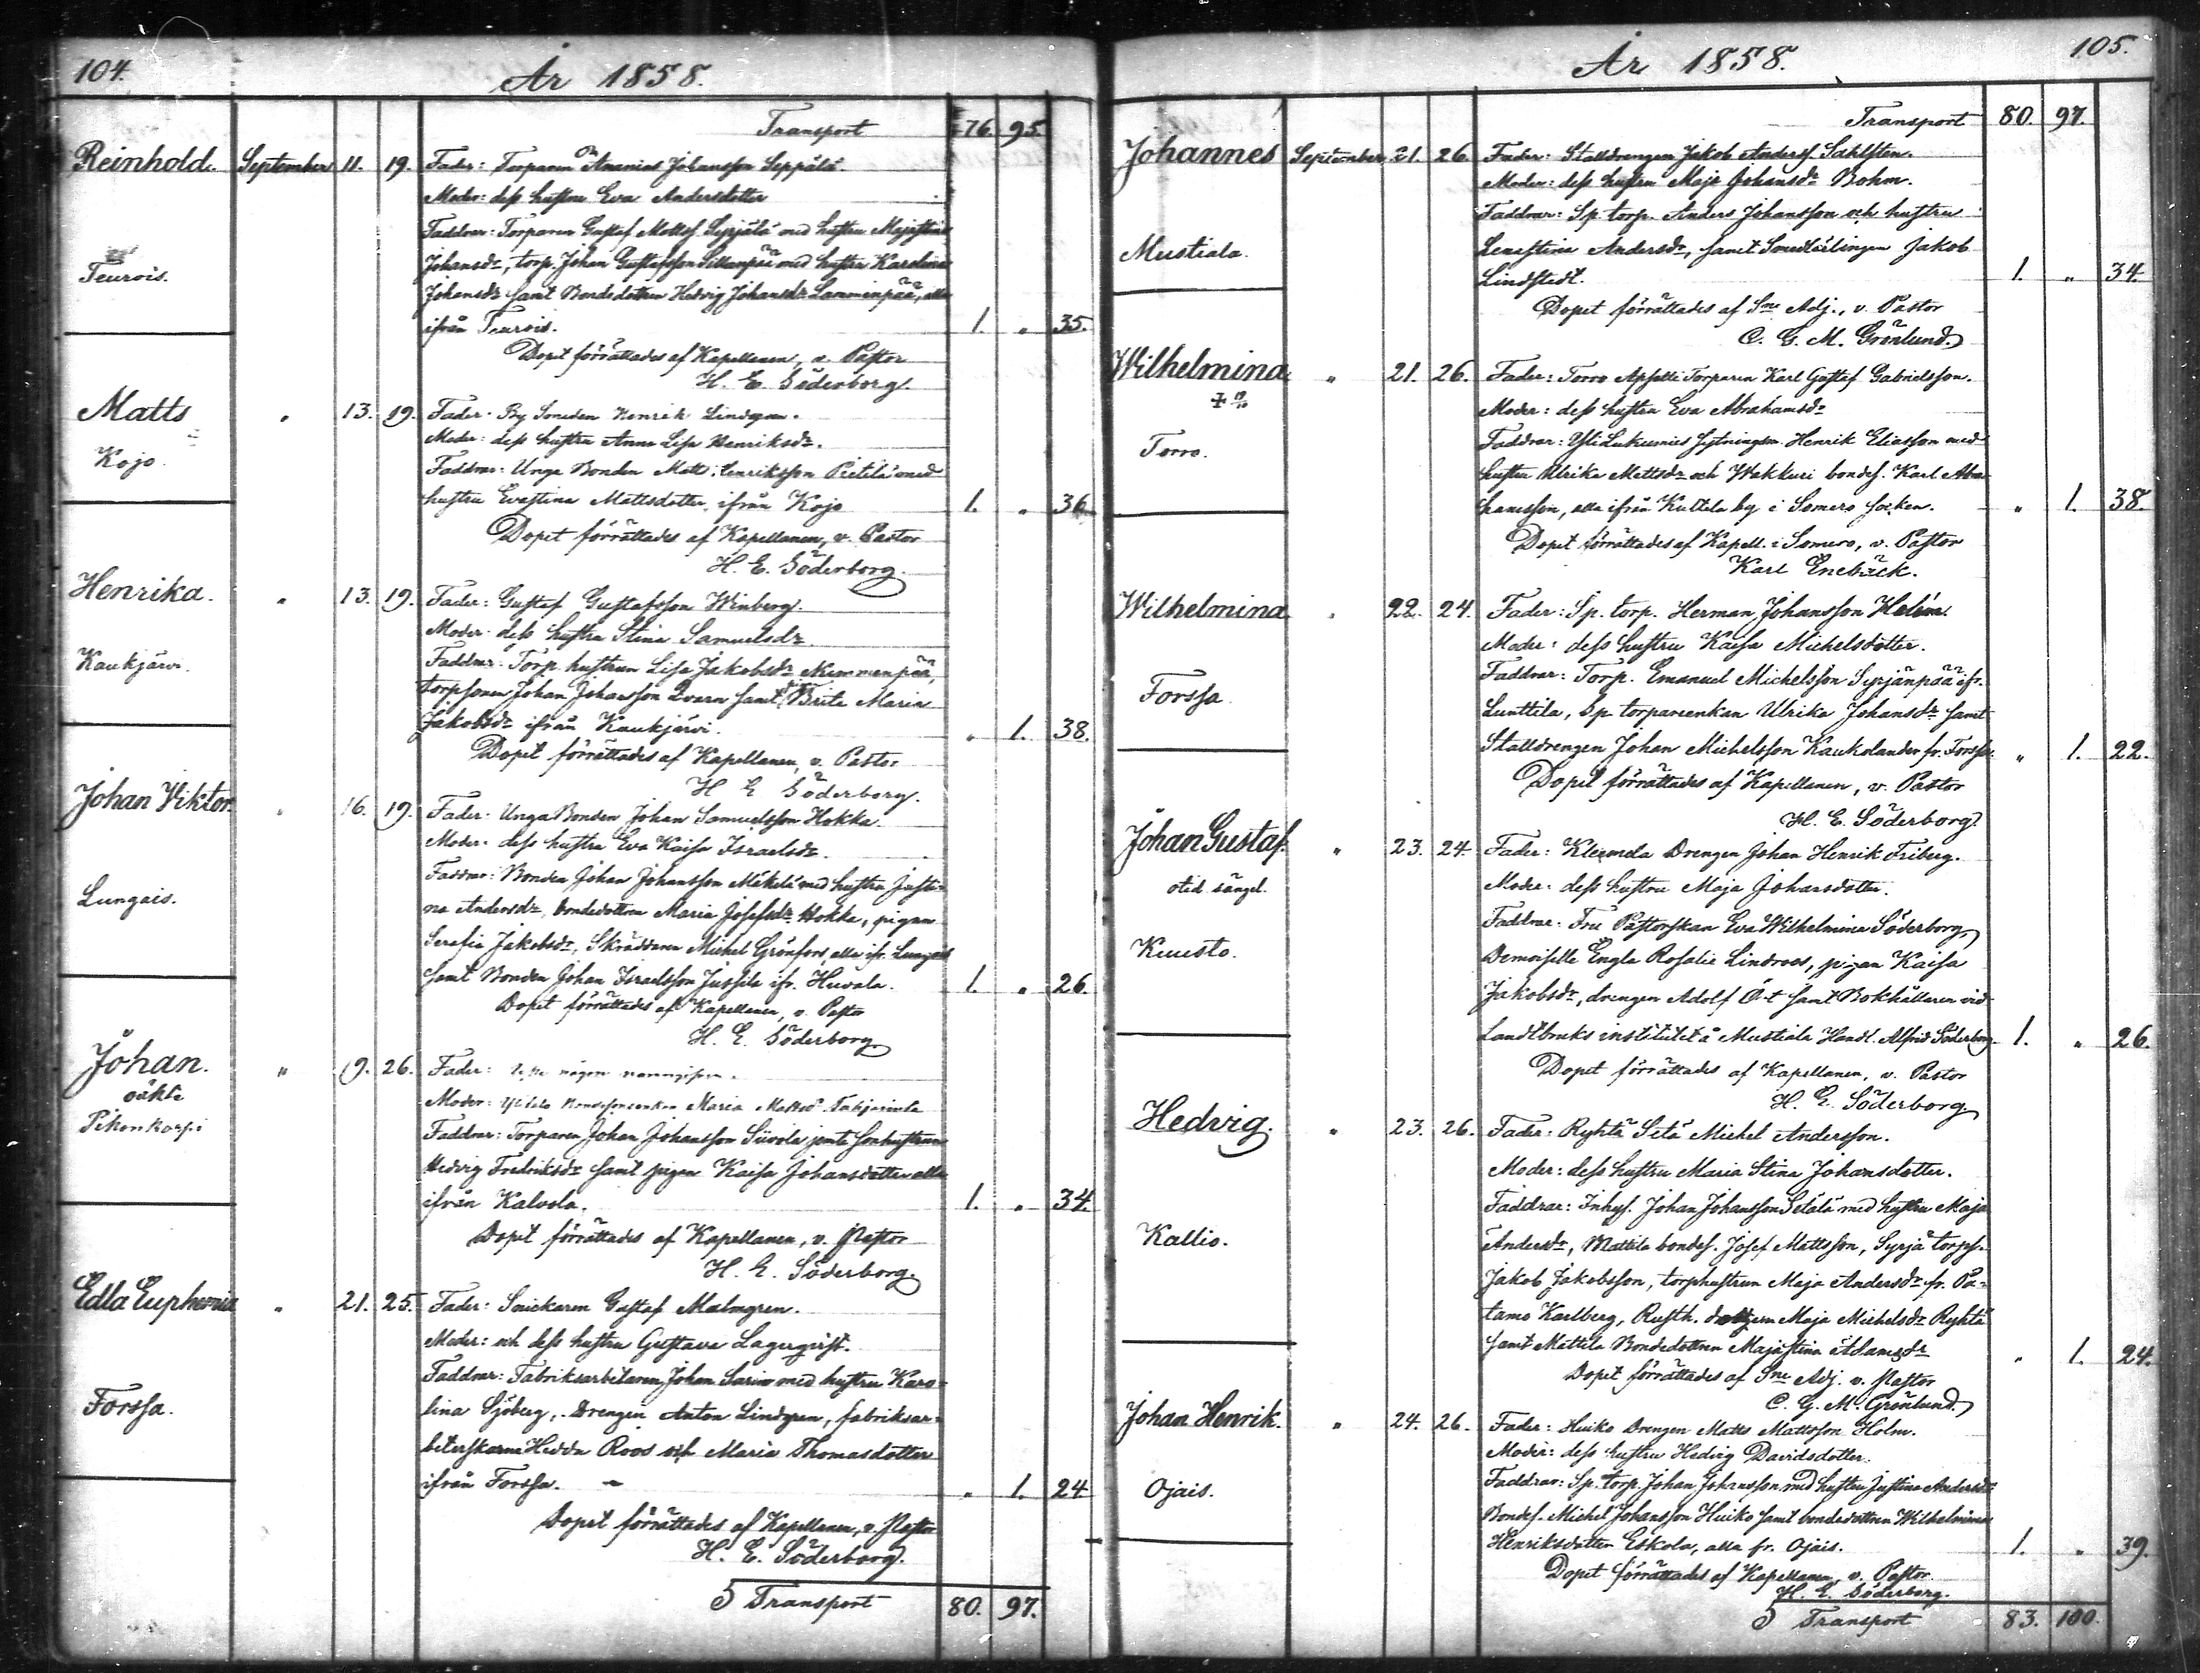 104.
År 1858.
Transport 76. 95.
Reinhold. September 11. 19. Fader: Torparen Ananias Johansson Seppälä.
Moder: dess hustru Eva Andersdotter
Faddrar: Torparen Gustaf Mattss. Syrjälä med hustru Majastina
Johansdr, torp. Johan Gustafsson Sillanpää med hustru Karolina
Teurois.
Johansdr samt Bondedottren Hedvig Johansdr Lamminpää, alla
ifrån Teurois. 1. " 35.
Dopet förrättades af Kapellanen, v. Pastor
H. E. Söderborg.
Matts " 13. 19. Fader: By Smeden Henrik Lindgren.
Moder: dess hustru Anna Lisa Henriksdr.
Kojo.
Faddrar: Unge Bonden Matts Henriksson Pietilä med
hustru Evastina Mattsdotter, ifrån Kojo 1. " 36.
Dopet förrättades af Kapellanen, v. Pastor
H. E. Söderborg.
Henrika. " 13. 19. Fader: Gustaf Gustafsson Winberg.
Moder: dess hustru Stina Samuelsdr
Kaukjärvi.
Faddrar: Torp. hustrun Lisa Jakobsdr Nummenpää,
torpsonen Johan Johansson Qvarn samt Brita Maria
Jakobsdr ifrån Kaukjärvi. " 1. 38.
Dopet förrättades af Kapellanen, v. Pastor
H E Söderborg.
Johan Viktor. " 16. 19. Fader: Unga Bonden Johan Samuelsson Hokka.
Moder: dess hustru Eva Kaisa Israelsdr.
Faddrar: Bonden Johan Johansson Mäkelä med hustru Justi-
Lungais.
na Andersdr, bondedottren Maria Josefsdr Hokka, pigan
Serafia Jakobsdr, Skräddaren Michel Grönfors, alla ifr. Lungais
samt Bonden Johan Israelsson Jussila ifr. Huvala. 1. " 26.
Dopet förrättades af Kapellanen, v. Pastor
H. E. Söderborg
Johan. " 19. 26. Fader: någon
oäkta
Moder: Maria Mattsdr
Pikonkorpi
Faddrar: Torparen Johan Johansson Siivola jemte sonhustrun
Hedvig Fredriksdr samt pigan Kaisa Johansdotter alla
ifrån Kalvola. 1. " 34.
Dopet förrättades af Kapellanen, v. Pastor
H. E. Söderborg.
Edla Euphemia " 21. 25. Fader: Snickaren Gustaf Malmgren.
Moder: och dess hustru Gustava Lagerqvist.
Faddrar: Fabriksarbetaren Johan Sarin med hustru Karo-
Forssa.
lina Sjöberg, Drengen Anton Lindgren, fabriksar-
beterskorna Hedda Roos och Maria Thomasdotter
ifrån Forssa. " 1. 24
Dopet förrättades af Kapellanen, v. Pastor
H. E. Söderborg.
5 Transport 80. 97.
105.
År 1858.
Transport 80. 97.
Johannes September 21. 26. Fader: Stalldrengen Jakob Anderss. Sahlsten.
Moder: dess hustru Maja Johansdr Bohm.
Faddrar: Sp. torp. Anders Johansson och hustru
Mustiala.
Lenastina Andersdr, samt Smedlärlingen Jakob
Lindstedt. 1. " 34.
Dopet förrättades af Sne Adj., v. Pastor
C. G. M. Grönlund.
Wilhelmina " 21. 26. Fader: Torro Torparen Karl Gustaf Gabrielsson.
Moder: dess hustru Eva Abrahamsdr
Torro.
Faddrar: Henrik Eliasson med
hustru Ulrika Mattsdr och Wakkuri bondes. Karl Abra-
hamsson, alla ifrån Kultela by i Somero socken. " 1. 38.
Dopet förrättades af Kapell. i Somero, v. Pastor
Karl Enebäck.
Wilhelmina " 22. 24. Fader: Sp. torp. Herman Johansson Helim.
Moder: dess hustru Kaisa Michelsdotter.
Forssa
Faddrar: Torp. Emanuel Michelsson Syrjänpää ifr.
Lunttila, Sp torpareenkan Ulrika Johansdr samt
Stalldrengen Johan Michelsson Kaukolander fr. Forssa. " 1. 22.
Dopet förrättades af Kapellanen, v. Pastor
H. E. Söderborg.
Johan Gustaf. " 23. 24. Fader: Klemela Drengen Johan Henrik Friberg.
otid. sängel.
Moder: dess hustru Maja Johansdotter.
Faddrar: Fru Pastorskan Eva Wilhelmina Söderborg,
Kuusto.
Demoiselle Engla Rosalie Lindroos, pigan Kaisa
Jakobsdr, drengen Adolf Öst samt Bokhållaren vid
Landtbruks institutet å Mustiala Handl. Alfrid Söderborg. 1. " 26.
Dopet förrättades af Kapellanen, v. Pastor
H. E. Söderborg.
Hedvig. " 23. 26. Fader: Ryhtä Sitä Michel Andersson.
Moder: dess hustru Maria Stina Johansdotter.
Faddrar: Inhys. Johan Johansson Setälä med hustru Maja
Kallio.
Andersdr, Mattila bondes. Josef Mattsson, Syrjä torps.
Jakob Jakobsson, torphustrun Maja Andersdr fr. Pa-
tamo Karlberg, Rusth. dottren Maja Michelsdr Ryhtä
samt Mattila Bondedottren Majastina Adamsdr " 1. 24.
Dopet förrättades af Sne Adj. v. Pastor
C. G. M. Grönlund.
Johan Henrik. " 24. 26. Fader: Huiko Drengen Matts Mattsson Holm.
Moder: dess hustru Hedvig Davidsdotter.
Ojais.
Faddrar: Sp. torp. Johan Johansson med hustru Justina Andersdr
Bondes. Michel Johansson Huiko samt bondedottren Wilhelmina
Henriksdotter Eskola, alla fr. Ojais. 1. " 39.
Dopet förrättades af Kapellanen, v. Pastor.
H. E. Söderborg.
5 Transport 83. 100.